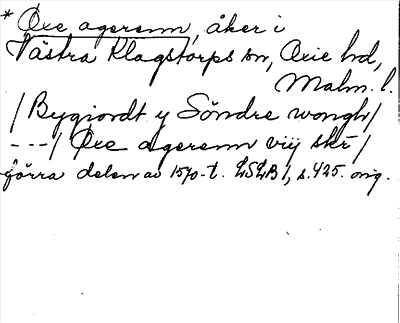 * Öxe agerenn, åker i
Västra Klagstorps sn, Oxie hd,
Malm. l.
/ Bygiordt y Söndre wongh /
--- / Öxe agerenn viij skr /
förra delen av 1570-t. LSLB 1, s. 425. orig.